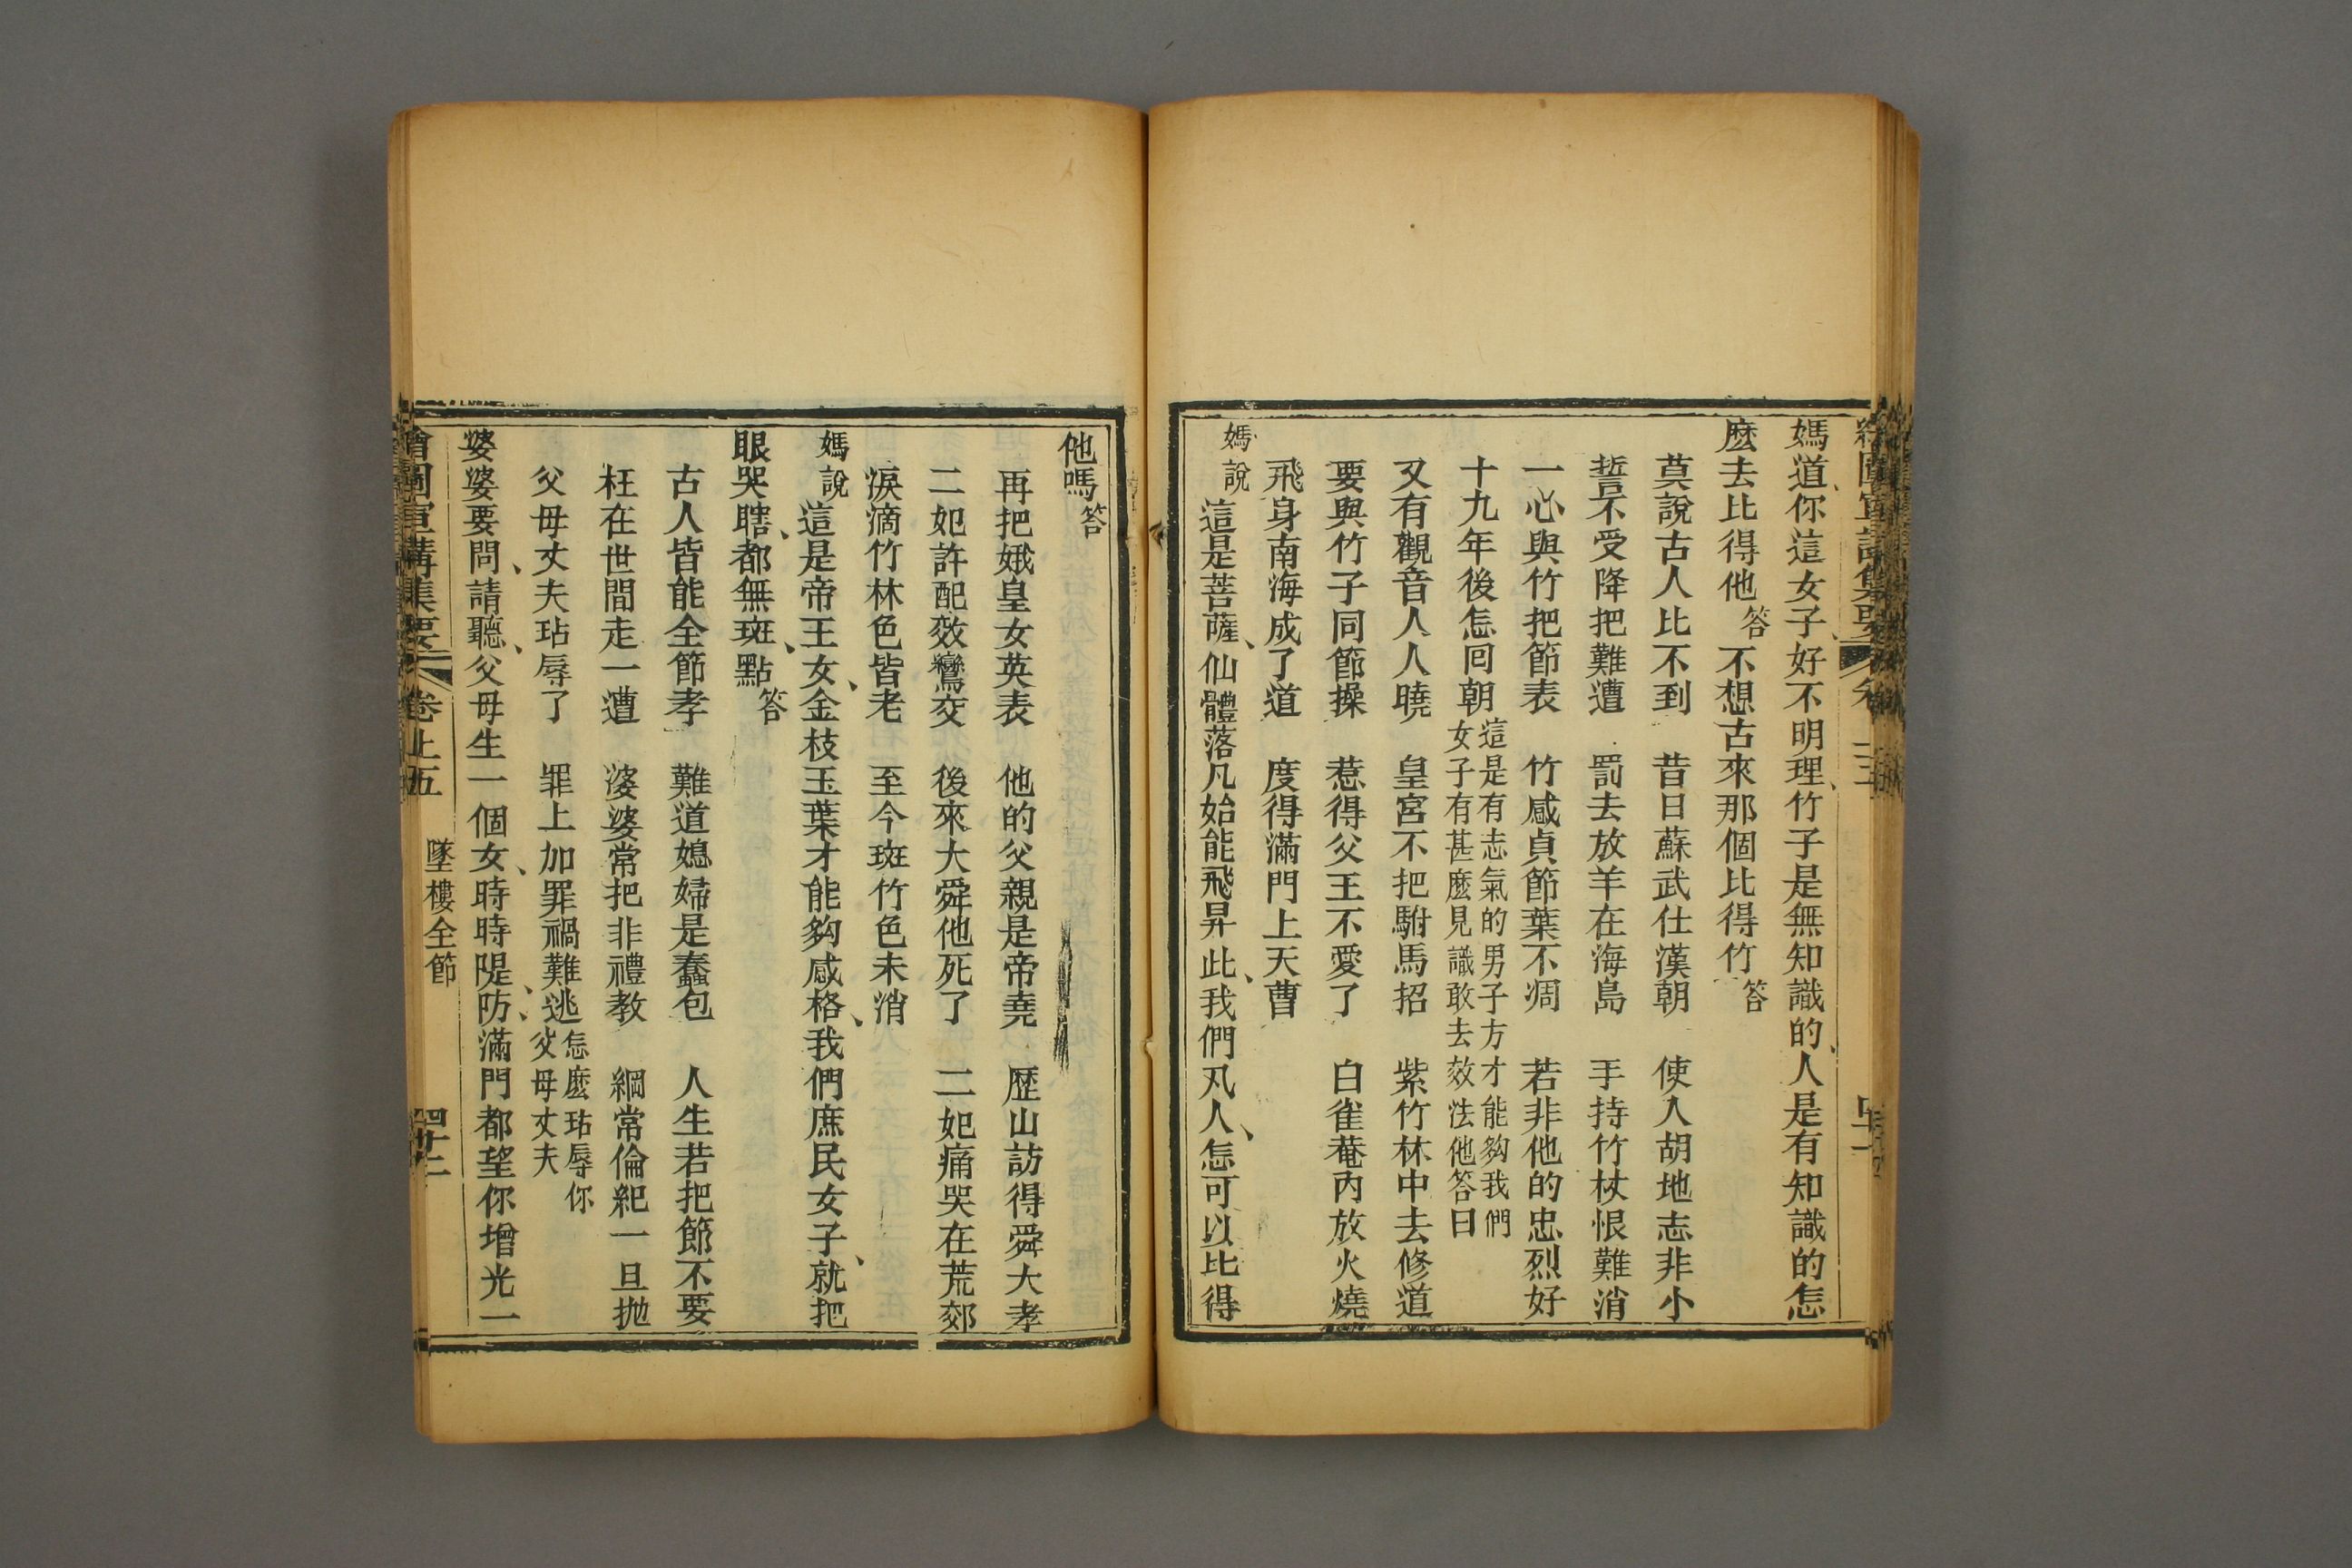 媽道、你這女子、好不明理、竹子是無知識的、人是有知識的怎
麽去比得他 答 不想古來那個比得竹 答
莫說古人比不到 昔日蘇武仕漢朝 使入胡地志非小
誓不受降把難遭 罰去放羊在海島 手持竹杖恨難消
一心與竹把節表 竹感貞節葉不凋 若非他的忠烈好
十九年後怎囘朝 這是有志氣的男子方才能夠我們
女子有甚麽見識敢去效法他答曰
又有觀音人人曉 皇宮不把駙馬招 紫竹林中去修道
要與竹子同節操 惹得父王不愛了 白雀菴內放火燒
飛身南海成了道 度得滿門上天曹
媽說 這是菩薩、仙體落凡始能飛昇此、我們凡人、怎可以比得
他嗎 答
再把娥皇女英表 他的父親是帝堯 歷山訪得舜大孝
二妃許配效鸞交 後來大舜他死了 二妃痛哭在荒郊
淚滴竹林色皆老 至今斑竹色未消
媽說 這是帝王女、金枝玉葉才能夠感格、我們庶民女子、就把
眼哭瞎、都無斑、點 答
古人皆能全節孝 難道媳婦是蠢包 人生若把節不要
枉在世間走一遭 婆婆常把非禮教 綱常倫紀一旦拋
父母丈夫玷辱了 罪上加罪禍難逃 怎麽玷辱你
父母丈夫
婆婆要問、請聽、父母生一個女、時時隄、防、滿門都望你增光一
繪圖宣講集要 卷上五 墜樓全節 四十二